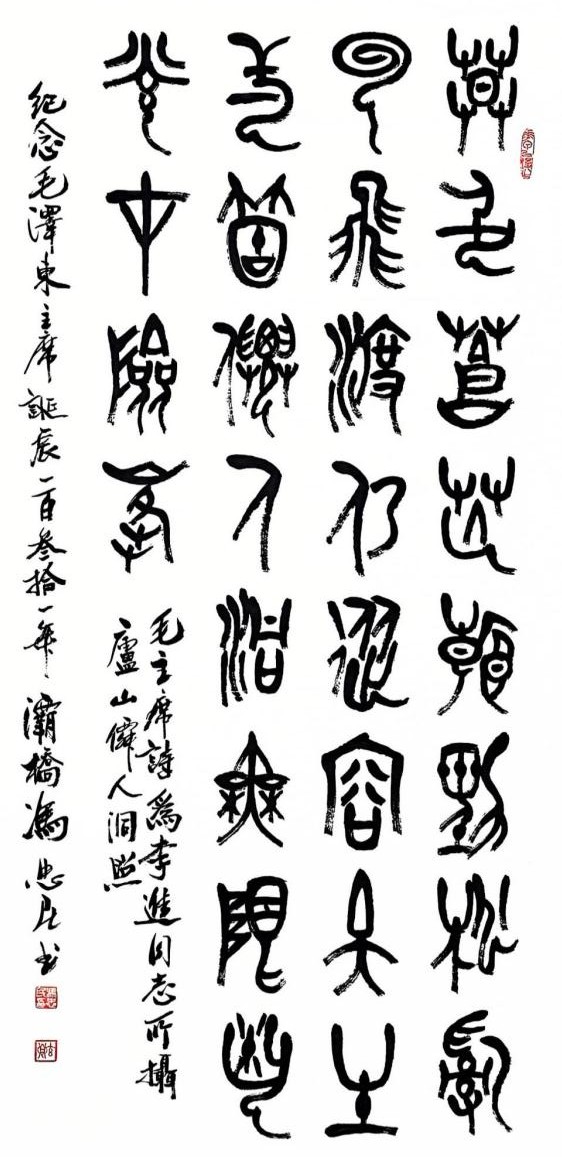 莫色蒼芒看勁松亂
云飛渡仍從容天生
弌箇僊人洞無限風
光在險峯
毛主席詩爲李進同志所攝
廬山僊人洞照
紀念毛澤東主席誕辰一百叁拾一年灞橋馮忠民书